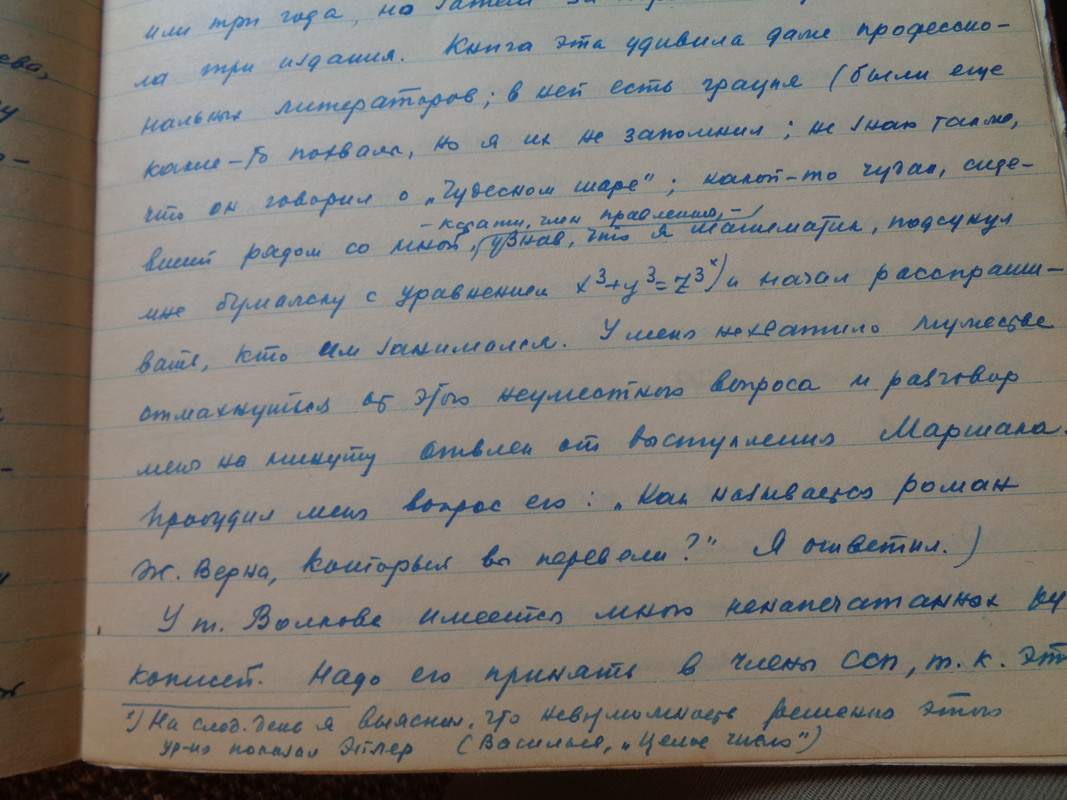 или три года, но затем за
ла три издания. Книга эта удивила даже профессио-
нальных литераторов; в ней есть грация (были еще
какие-то похвалы, но я их не запомнил; не знаю также,
что он говорил о „Чудесном шаре"; какой-то чудак, сидe-
- кстати, член правления, -
вший рядом со мной, узнав, что я математик, подсунул
мне бумажку с уравнением x³+y³=z³ˣ) и начал расспраши-
вать, кто им занимался. У меня нехватило мужества
отмахнуться от этого неуместного вопроса и разговор
меня на минуту отвлек от выступления Маршака.
Пробудил меня вопрос его: „Как называется роман
Ж. Верна, который вы перевели?" Я ответил.)
У т. Волкова имеется много ненапечатанных ру
кописей. Надо его принять в члены ССП, т.к. эт
ˣ) На след. день я выяснил, что невозможность решения этого
ур-ия показал Эйлер (Васильев, „Целое число")